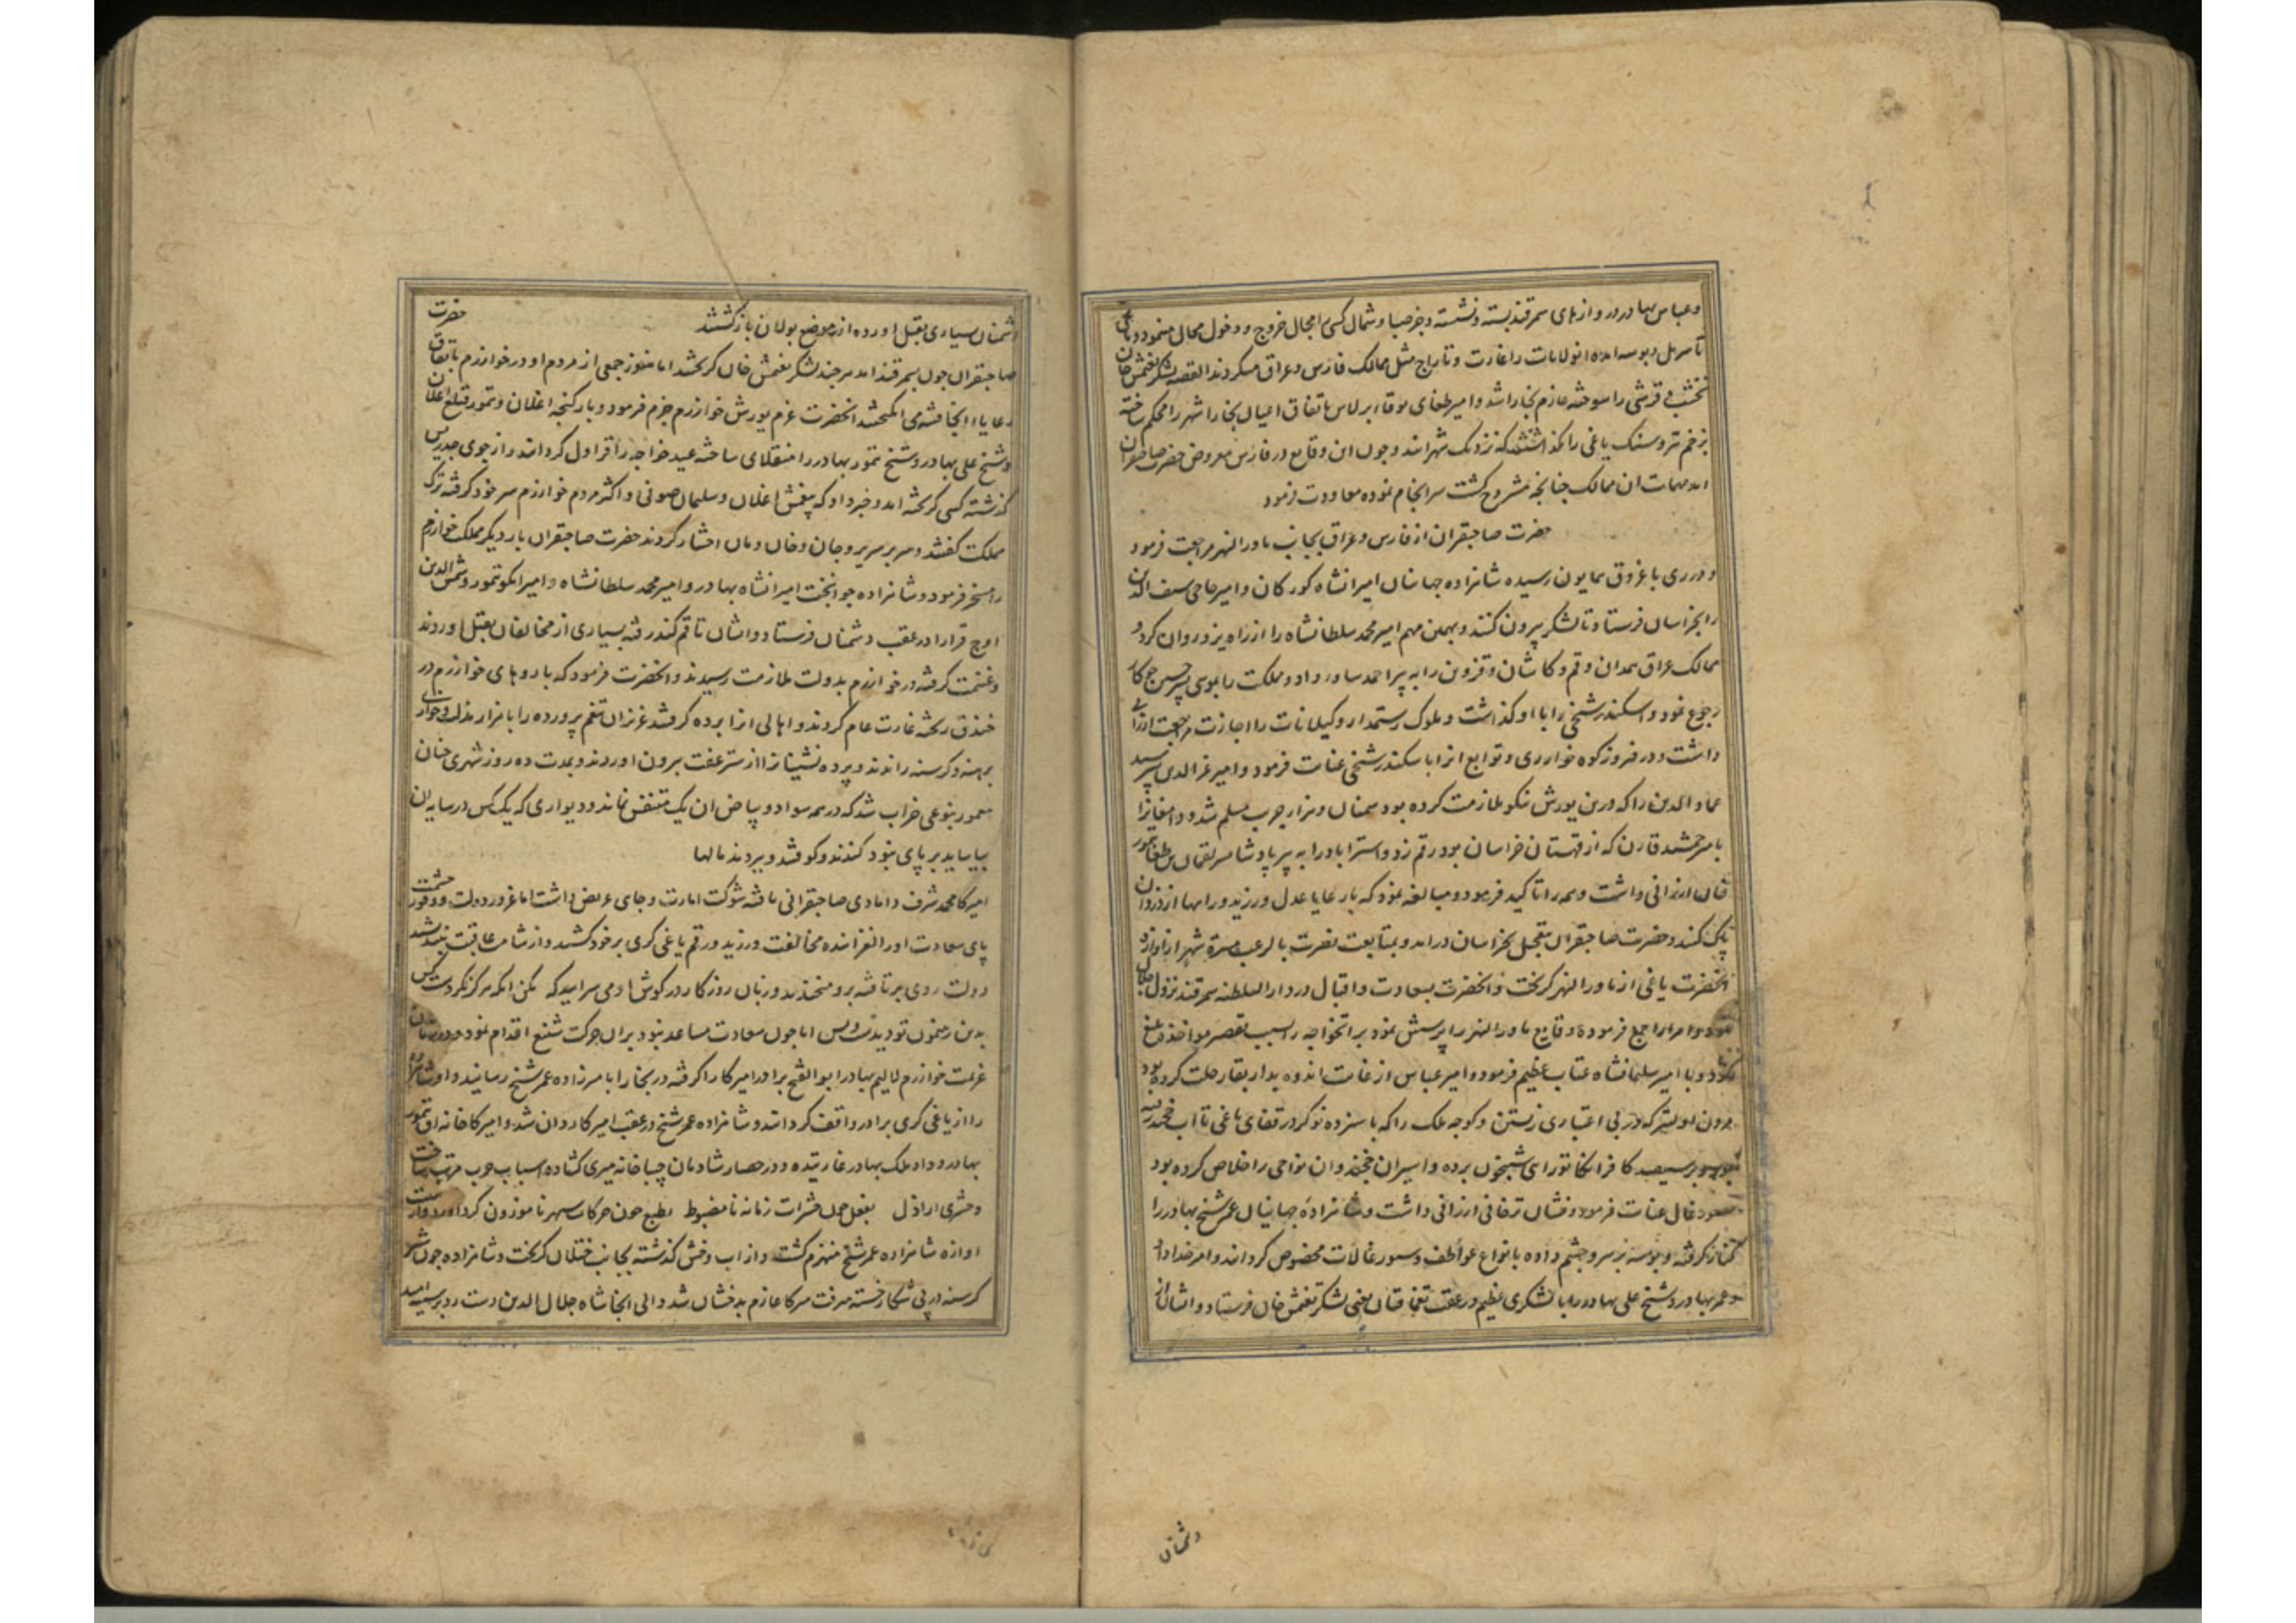 و عباس بهادر دروازهای سمرقند بسته و نشسته و جز صبا و شمال کسی را مجال خروج و دخول محال مینمود و یاغی
تا سرپل و بوسه امده انولایات را غارت و تاراج مثل ممالک فارس و عراق میکردند القصه لشکر تغتمش خان
نخشب و قرشی را سوخته عازم بخارا شد و امیر طغای بوقاء برلاس باتفاق اعیان بخارا شهر را محکم ساخته
بزخم تیر و سنک یاغی را نکذاشتند که نزدیک شهر ایند و چون این وقایع در فارس معروض حضرت صاحبقران
امد مهمات ان ممالک چنانچه مشروح کشت سرانجام نموده معاودت فرمود
حضرت صاحبقران از فارس و عراق بجانب ماورالنهر مراجعت فرمود
و در ری باغروق همایون رسیده شاهزاده جهانیان امیرانشاه کورکان و امیر حاجی سیف الدین
را بخراسان فرستاد تا لشکر بیرون کنند و بهمین مهم امیر محمد سلطانشاه را از راه یزد روان کرد و
ممالک عراق همدان و قم و کاشان و قزوین را به پیر احمد ساوه داد و مملکت را بموسی پسر حسین جوکار
رجوع نمود و اسکندر شیخی را با او کذاشت و ملوک رستمدار و کیلانات را اجازت مراجعت ارزانی
داشت و در فیروزکوه خوار ری و توابع انرا باسکندر شیخی عنایت فرمود و امیر عزالدین پسر سید
عماد الدین را که درین یورش نیکو ملازمت کرده بود سمنان و هزار جریب مسلم شد و دامغانرا
بامیر جمشید قارن که از قهستان خراسان بود رقم زد و استراباد را به پیر پادشا پسر لقمان بن طغاتیمور
خان ارزانی داشت و همه را تاکید فرمود و مبالغه نمود که با رعایا عدل ورزید و راهها از دزدان
پاک کنند و حضرت صاحبقران بتعجیل بخراسان درامد و بمتابعت نصرت بالرعب مسیرة شهر از اوازه
انحضرت یاغی از ماورالنهر کریخت و انحضرت بسعادت و اقبال در دارالسلطنه سمرقند نزول اجلال
نمود و امرا را جمع فرموده وقایع ماورالنهر را پرسش نمود برات خواجه را بسبب تقصیر مواخذ بلیغ
نمود و با امیر سلیمانشاه عتاب عظیم فرمود و امیر عباس از غایت اندوه بدار بقا رحلت کرده بود
مردن اولیتر که در بی اعتباری زیستن و کوچه ملک را که با سیزده نوکر در قفای یاغی تا اب خجند رسیده
بود و بر سیصد کافر شبیخون برده و اسیران خجند و ان نواحی را خلاص کرده بود
سیورغال عنایت فرمود و نشان ترخانی ارزانی داشت و شاهزاده جهانیان عمر شیخ بهادر را
کنار کرفته و بوسه بر سر و چشم داده بانواع عواطف و سیورغالات مخصوص کردانید و امیر خداداد
و عمر بهادر و شیخ علی بهادر را با لشکری عظیم در عقب یعنی لشکر تغتمش خان فرستاد و ایشان از
دشمنان
دشمنان بسیاری بقتل اورده از موضع بولان بازکشتند حضرت
صاحبقران چون بسمرقند امد هرچند لشکر تغتمش خان کریختند اما هنوز جمعی از مردم او در خوارزم باتفاق
رعایاء انجا فتنه می انکیختند انحضرت عزم یورش خوارزم جزم فرمود و بار کنجه اغلان و تمور قتلغ اغلان
و شیخ علی بهادر و شیخ تمور بهادر را منقلای ساخته عید خواجه را قراول کردانید و از جوی جدریس
کذشته کسی کریخته امد و خبر داد که ییغمش اغلان و سلیمان صوفی و اکثر مردم خوارزم سر خود کرفته ترک
مملکت کفتند و سر بر سریر و جان و خان و مان اختیار کردند حضرت صاحبقران بار دیکر مملکت خوارزم
را مسخر فرمود و شاهزاده جوانبخت امیرانشاه بهادر و امیر محمد سلطانشاه و امیر ایکوتمور و شمس الدین
اوچ قرا را در عقب دشمنان فرستاد و ایشان تا قم کند رفته بسیاری از مخالفان بقتل اوردند
و غنیمت کرفته در خوارزم بدولت ملازمت رسیدند و انحضرت فرمود که باروهای خوارزم در
خندق ریخته غارت عام کردند و اهالی انرا برده کرفتند عزیزان تنعم پرورده را با هزار مذلت و خواری
برهنه و کرسنه راندند و پرده نشینانرا از ستر عفت بیرون اوردند و بمدت ده روز شهری چنان
معمور بنوعی خراب شد که در همه سواد و بیاض ان یک متنفس نماند و دیواری که یک کس در سایه ان
بیاساید بر پای نبود کندند و کوفتند و بردند مالها
امیرکا محمد شرف دامادی صاحبقرانی یافته شوکت امارت و جای عریض داشت اما غرور دولت و وفور حشمت
پای سعادت او را لغزانیده مخالفت ورزید و رقم یاغی کری بر خود کشید و از شامت عاقبت نیندیشید
دولت روی برتافته برو میخندید و زبان روزکار در کوش او می سرایید که مکن انکه هرکز نکردست کس
بدین رهنمون تو دیدست و بس اما چون سعادت مساعد نبود بران حرکت شنیع اقدام نمود و در زمان
عزیمت خوارزم لالیم بهادر ابوالفتح برادر امیرکا را کرفته در بخارا بامیرزاده عمر شیخ رسانید و او شاهزاده
را از یاغی کری برادر واقف کردانید و شاهزاده عمر شیخ در عقب امیرکا روان شد و امیرکا خانه اق تمور
بهادر و داد ملک بهادر غارتیده و در حصار شادمان جباخانه میری کشاده اسباب حرب مرتب ساخت
و حشری اراذل بفعل چون حشرات زمانه نامضبوط بطبع چون حرکات سپهر ناموزون کرد اورد و از
اوازه شاهزاده عمر شیخ منهزم کشت و از اب وخش کذشته بجانب ختلان کریخت و شاهزاده چون شیر
کرسنه در پی شکار خسته میرفت میرکا عازم بدخشان شد والی انجا شاه جلال الدین دست رد بر سینه امید